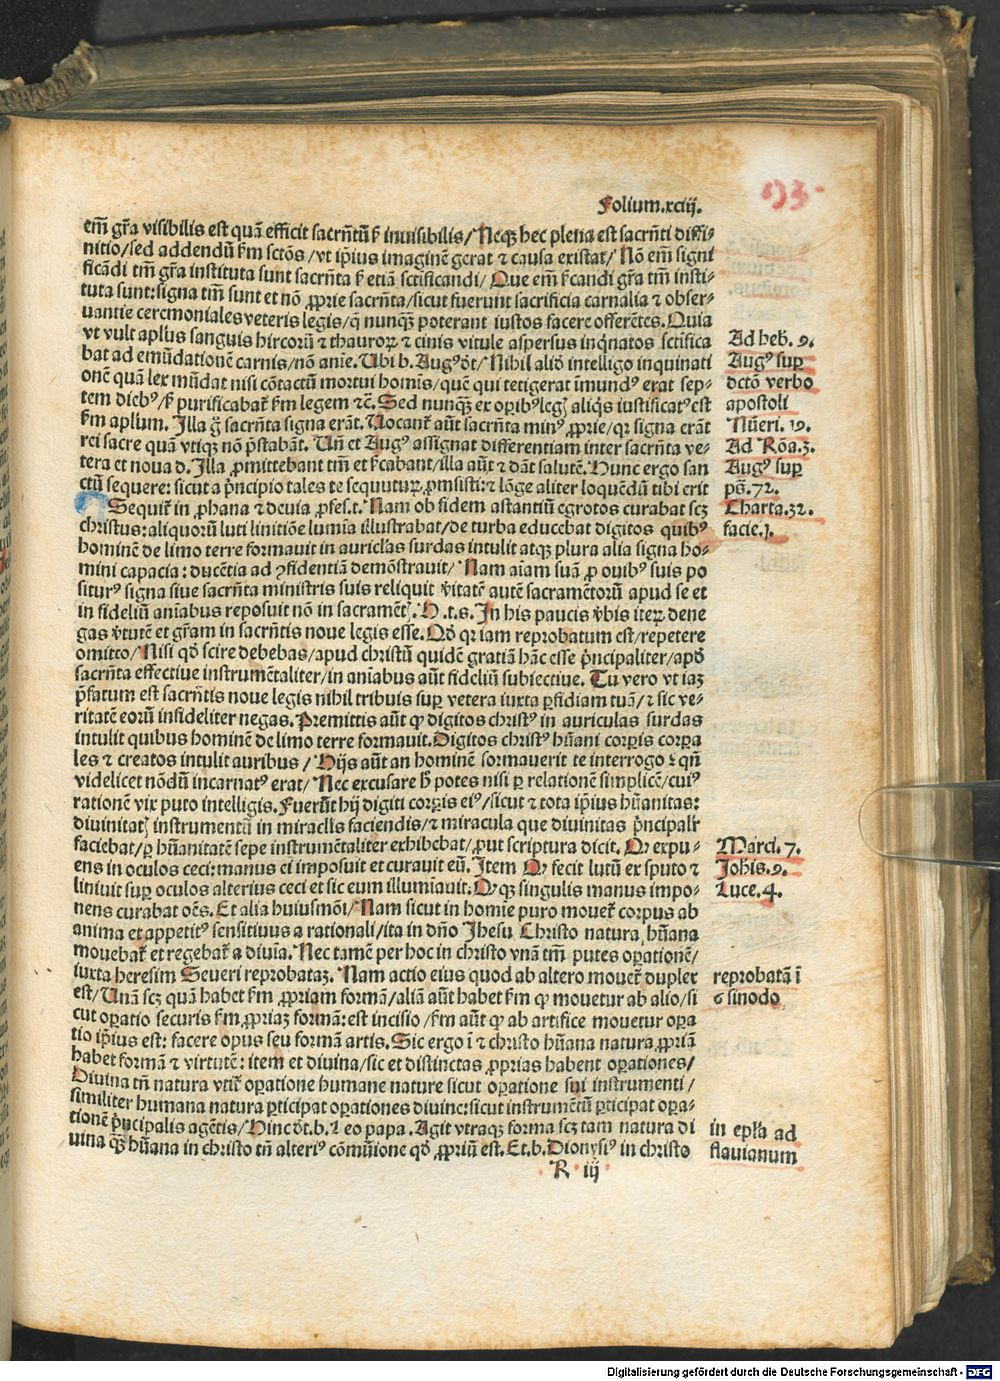 Folium.xciij.
93
em̄ gr̄a visibilis est quā efficit sacrn̄tū ꝭ inuisibilis/ Neqꝫ hec plena est sacrn̄ti diffi⸗
nitio/ sed addendū ẜm sctōs /vt ip̄ius imaginē gerat ⁊ causa existat/ Nō em̄ signi
ficādi tm̄ gr̄a instituta sunt sacrn̄ta ẜ etiā sctificandi/ Que em̄ ẜcandi gr̄a tm̄ insti⸗
tuta sunt: signa tm̄ sunt et nō ꝓprie sacrn̄ta/ sicut fuerunt sacrificia carnalia ⁊ obser⸗
uantie ceremoniales veteris legis/ q̄ nunqꝫ poterant iustos facere offerētes. Quia
vt vult aplus sanguis hircorū ⁊ thauroꝝ ⁊ cinis vitule aspersus inq̇natos sctifica
bat ad emūdationē carnis/ nō anīe. Ubi b. Augꝰ d̄t/ Nihil aliđ intelligo inquinati
onē quā lex mūdat nisi cōtactū mortui homīs/ quē qui tetigerat īmundꝰ erat sep⸗
tem diebꝰ/ ẜ purificabat̄ ẜm legem ⁊c̄. Sed nunqꝫ ex oꝑibꝰ legꝭ aliq̇s iustificatꝰ est
ẜm aplum. Illa g̊ sacrn̄ta signa erāt. Uocant̄ aūt sacrn̄ta minꝰ ꝓprie/ qꝛ signa erāt
rei sacre quā vtiqꝫ nō p̄stabāt. Un̄ et Augꝰ assignat differentiam inter sacrn̄ta ve⸗
tera et noua d. Illa ꝓmittebant tm̄ et ẜcabant/ illa aūt ⁊ dāt salutē. Hunc ergo san
ctū sequere: sicut a p̄ncipio tales te sequuturꝝ ꝓmisisti: ⁊ lōge aliter loquēdū tibi erit
Sequit̄ in ꝓhana ⁊ deuia ꝓfes.t. Nam ob fidem astantiū egrotos curabat scꝫ
christus: aliquorū luti linitiōe lumīa illustrabat/ de turba educebat digitos quibꝰ
hominē de limo terre formauit in auricl̄as surdas intulit atqꝫ plura alia signa ho⸗
mini capacia: ducētia ad ꝯfidentiā demōstrauit/ Nam aīam suā ꝓ ouibꝰ suis po
siturꝰ signa siue sacrn̄ta ministris suis reliquit v̇itatē autē sacramētorū apud se et
in fideliū aniabus reposuit nō in sacramētꝭ. H.t.s. In his paucis v̇bis iteꝝ dene
gas v̇tutē et gr̄am in sacrn̄tis noue legis esse. Qđ qꝛ iam reprobatum est/ repetere
omitto/ Nisi qđ scire debebas/ apud christū quidē gratiā hāc esse p̄ncipaliter/ apđ
sacrn̄ta effectiue instrumētaliter/ in aniabus aūt fideliū subiectiue. Tu vero vt iaꝫ
p̄fatum est sacrn̄tis noue legis nihil tribuis suꝑ vetera iuxta ꝑfidiam tuā/ ⁊ sic ve⸗
ritatē eorū infideliter negas. Premittis aūt ꝙ digitos christꝰ in auriculas surdas
intulit quibus hominē de limo terre formauit. Digitos christꝰ hūani corꝑis corꝑa
les ⁊ creatos intulit auribus/ Hijs aūt an hominē formauerit te interrogo ⁊ qn̄
videlicet nōdū incarnatꝰ erat/ Nec excusare h̄ potes nisi ꝑ relationē simplicē/ cuiꝰ
rationē vix puto intelligis. Fuerūt hij digiti corꝑis eiꝰ/ sicut ⁊ tota ip̄ius hūanitas:
diuinitatꝭ instrumentū in miracl̄is faciendis/ ⁊ miracula que diuinitas p̄ncipalr̄
faciebat/ ꝑ hūanitatē sepe instrumētaliter exhibebat/ ꝓut scriptura dicit. Qꝛ expu⸗
ens in oculos ceci: manus ei imposuit et curauit eū. Item Qꝛ fecit lutū ex sputo ⁊
liniuit suꝑ oculos alterius ceci et sic eum illumiauit. Qꝛ qꝫ singulis manus impo⸗
nens curabat oēs. Et alia huiusmōi/ Nam sicut in homīe puro mouet̄ corpus ab
anima et appetitꝰ sensitiuus a rationali/ ita in dn̄o Jhesu Christo natura hūana
mouebat̄ et regebat̄ a diuīa. Nec tamē per hoc in christo vnā tm̄ putes oꝑationē/
iuxta heresim Seueri reprobataꝫ. Nam actio eius quod ab altero mouet̄ duplex
est/ Unā scꝫ quā habet ẜm ꝓpriam formā/ aliā aūt habet ẜm ꝙ mouetur ab alio/ si
cut oꝑatio securis ẜm ꝓpriaꝫ formā: est incisio / ẜm aūt ꝙ ab artifice mouetur oꝑa
tio ip̄ius est: facere opus seu formā artis. Sic ergo ī ⁊ christo hūana natura ꝓpriā
habet formā ⁊ virtutē: item et diuina/ sic et distinctas ꝓprias habent oꝑationes/
Diuina tn̄ natura vtit̄ oꝑatione humane nature sicut oꝑatione sui instrumenti /
similiter humana natura ꝑticipat oꝑationes diuine: sicut instrumētū ꝑticipat oꝑa⸗
tionē p̄ncipalis agētis/ Hinc d̄t. b. Leo papa. Agit vtraqꝫ forma scꝫ tam natura di
uina qꝫ hūana in christo tn̄ alteriꝰ cōmūione qđ ꝓpriū est. Et. b. Dionysiꝰ in christo
R iij
Ad heb̄. 9.
Augꝰ suꝑ
dctō verbo
apostoli
Nūeri. 19.
Ad Roa. 3.
Augꝰ suꝑ
ps̄. 72.
Charta. 32.
facie. 1.
Marci. 7.
Johis. 9.
Luce. 4.
reprobatā ī
6 sinodo
in epl̄a ad
flauianum
Digitalisierung gefördert durch die Deutsche Forschungsgemeinschaft - DFG